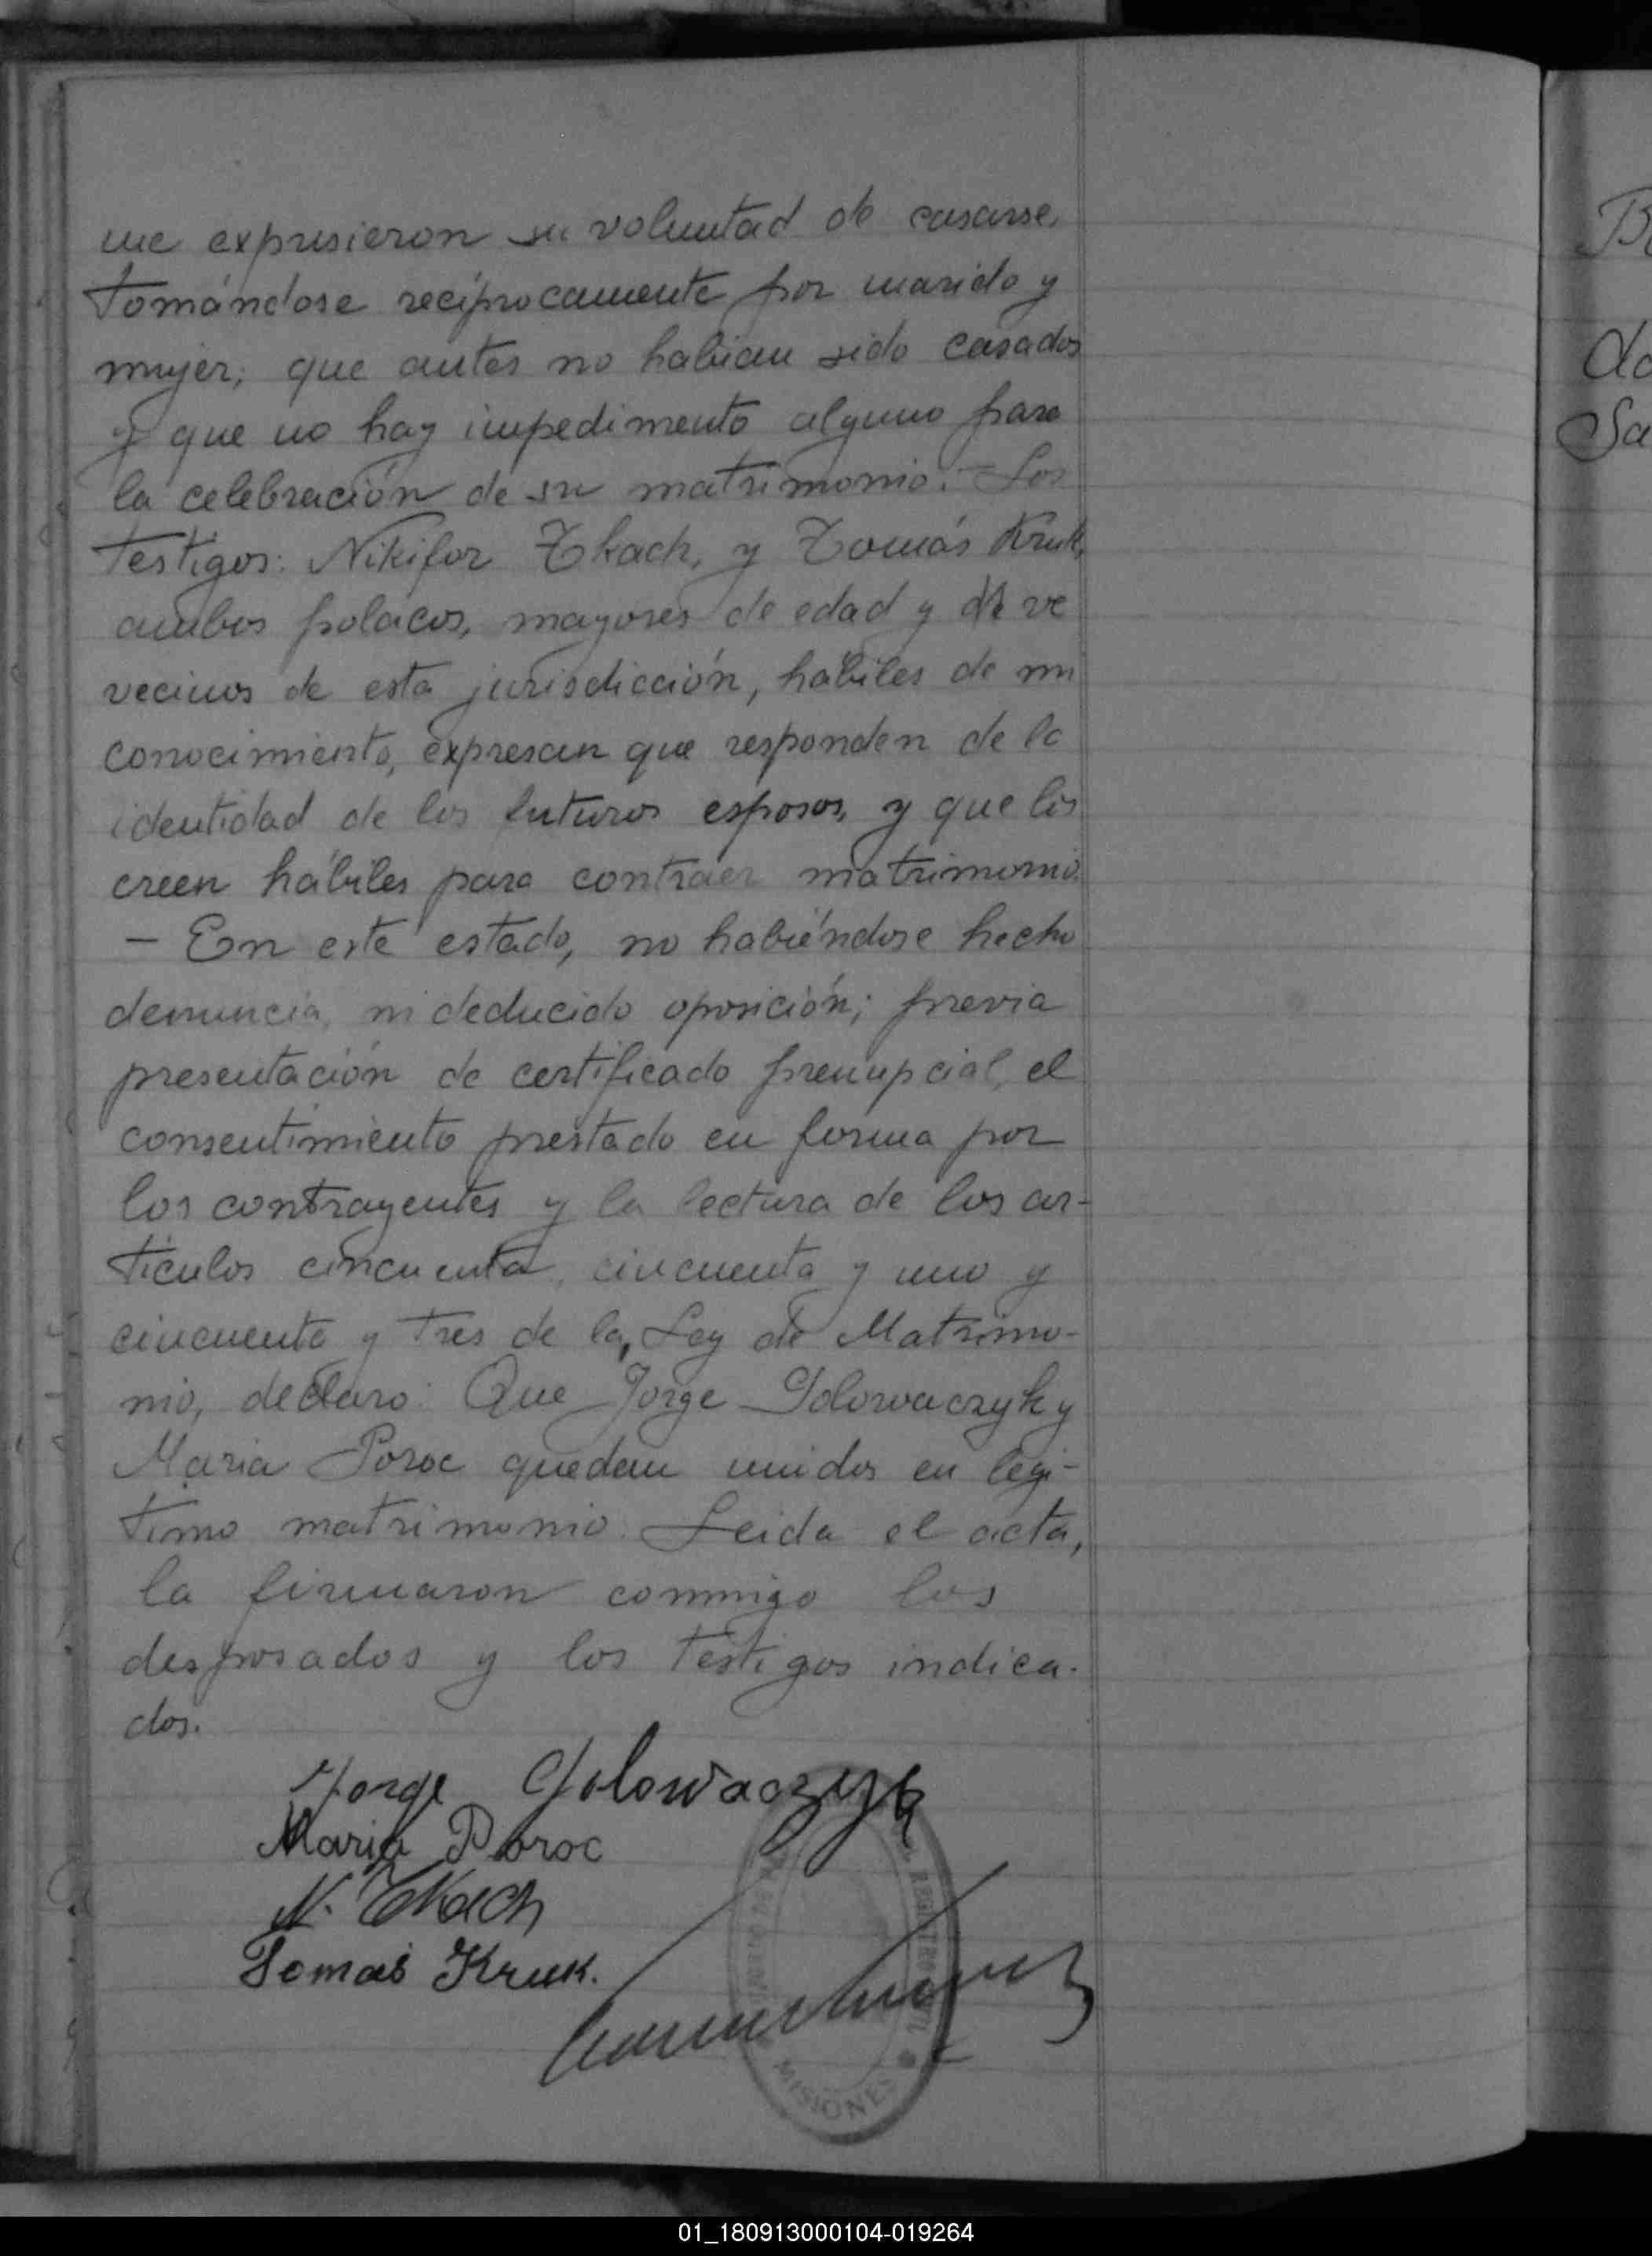 me expresieron su voluntad de casarse,
tomándose recíprocamente por marido y
mujer; que antes no habian sido casados
y que no hay impedimento alguno para
la celebración de su matrimonio.= Los
testigos: Nikifor Tkach, y Tomás Kruk,
ambos polacos, mayores de edad y de ve
vecinos de esta jurisdicción, hábiles de mi
conocimiento, expresan que responden de la
identidad de los futuros esposos, y que los
creen hábiles para contraer matrimonio.
- En este estado, no habiéndose hecho
denuncia, ni deducido oposición; previa
presentación de certificado prenupcial, el
consentimiento prestado en forma por
los contrayentes y la lectura de los ar-
tículos cincuenta, cincuenta y uno y
cincuenta y tres de la, Ley de Matrimo-
nio, declaro: Que Jorge Golowaczyk y
Maria Poroc quedan unidos en legi-
timo matrimonio. Leida el acta,
la firmaron conmigo los
desposados y los testigos indica-
dos.
Jorge Golowaczyk
Maria Poroc
N. Tkach
Tomas Kruk.
REGISTRO CIVIL
MISIONES
Sa
01_180913000104-019264